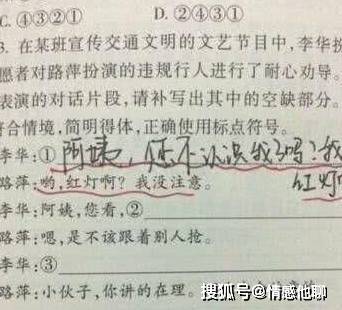 C. ④③②① D. ②④③①
3. 在某班宣传交通文明的文艺节目中,李华扮
愿者对路萍扮演的违规行人进行了耐心劝导。
表演的对话片段,请补写出其中的空缺部分。
符合情境,简明得体,正确使用标点符号。
李华:① 阿姨,您不认识我了吗?我
路萍:哟,红灯啊?我没注意。 红灯
李华:阿姨,您看,②
路萍:嗯,是不该跟着别人抢。
李华:③
路萍:小伙子,你讲的在理。
搜狐号@情感他聊